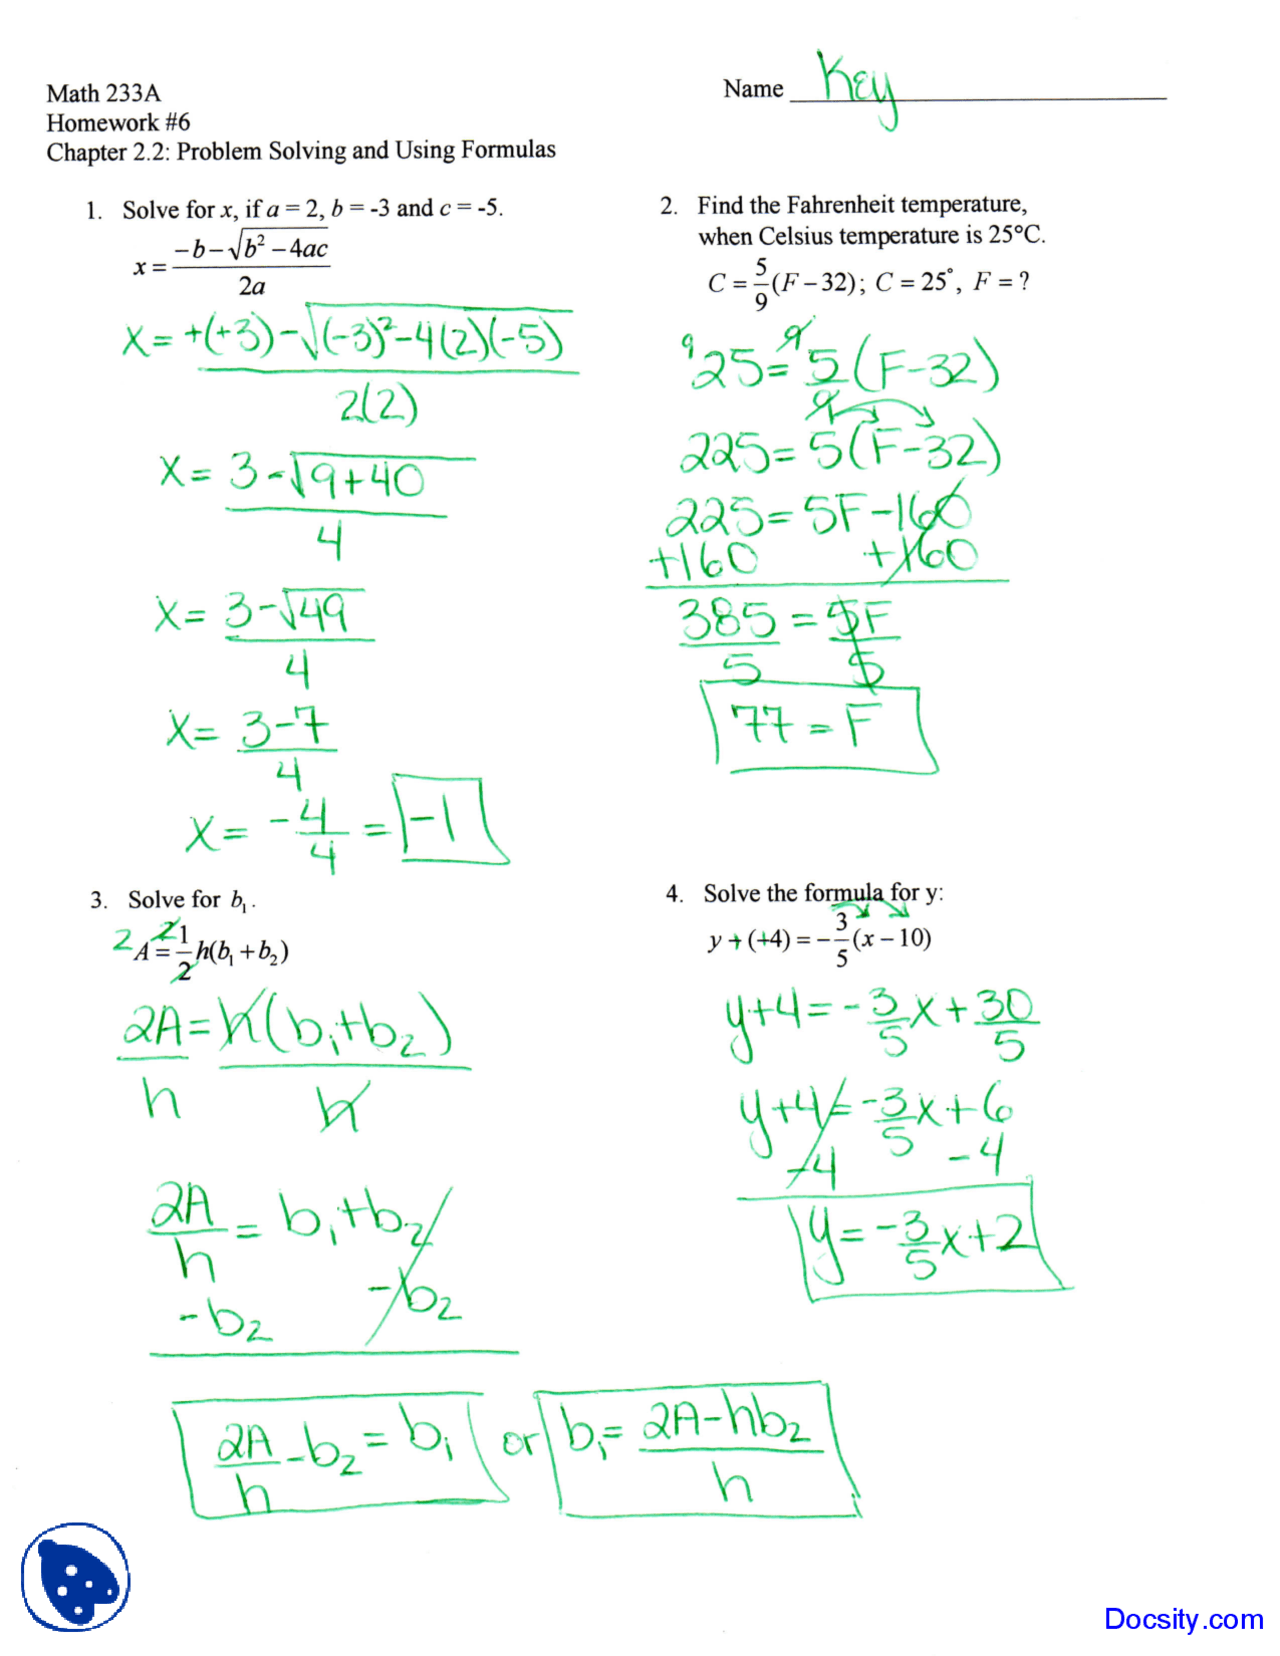 Math 233A
Homework #6
Chapter 2.2: Problem Solving and Using Formulas
Name Key
1. Solve for x, if a = 2, b = -3 and c = -5.
x = (-b - √(b² - 4ac)) / 2a
x = +(+3) - √((-3)² - 4(2)(-5)) / 2(2)
x = 3 - √(9 + 40) / 4
x = 3 - √49 / 4
x = 3 - 7 / 4
x = -4/4 = -1
2. Find the Fahrenheit temperature,
when Celsius temperature is 25°C.
C = 5/9 (F - 32); C = 25°, F = ?
9 25 = 9 5/9 (F - 32)
225 = 5(F - 32)
225 = 5F - 160
+160 +160
385/5 = 5F/5
77 = F
3. Solve for b₁.
2 A = 2 1/2 h(b₁ + b₂)
2A/h = h(b₁ + b₂)/h
2A/h = b₁ + b₂
- b₂ - b₂
2A/h - b₂ = b₁ or b₁ = 2A - hb₂ / h
4. Solve the formula for y:
y + (+4) = -3/5 (x - 10)
y + 4 = -3/5 x + 30/5
y + 4 = -3/5 x + 6
-4 -4
y = -3/5 x + 2
Docsity.com